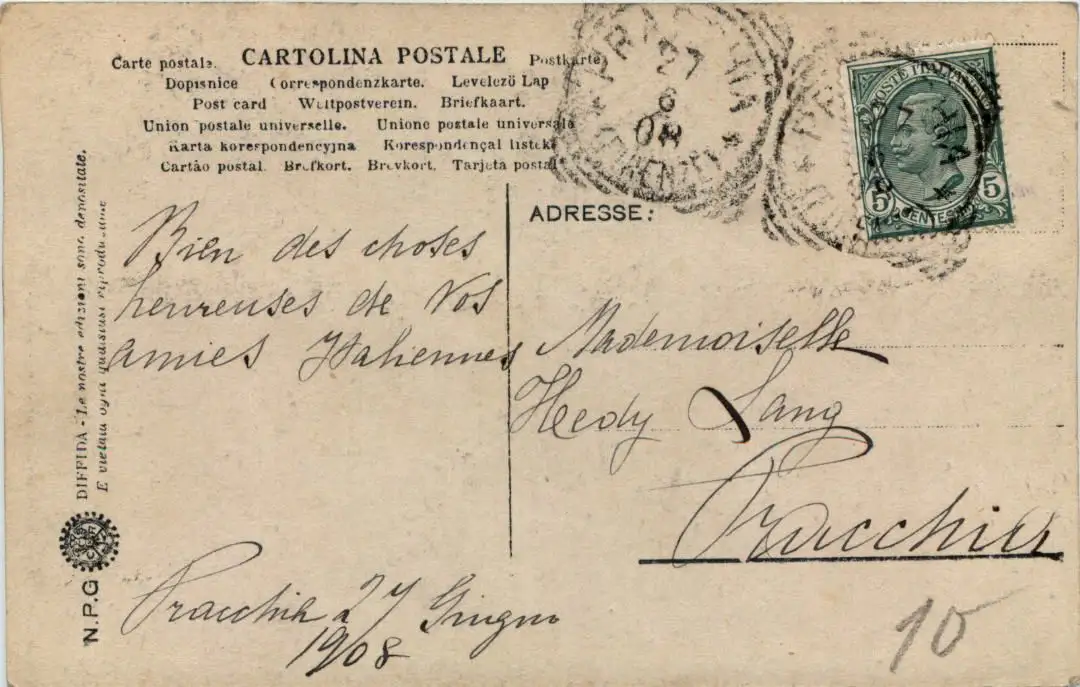 Carte postale. CARTOLINA POSTALE Postkarte
Dopisnice Correspondenzkarte. Levelezö Lap
Post card Weltpostverein. Briefkaart.
Union postale universelle. Unione postale universale
Karta korespondencyjna Korespondençal listek
Cartão postal. Brefkort. Brevkort. Tarjeta postal
PRACCHIA
27
6
08
(FIRENZE)
POSTE ITALIANE
5 5
ADRESSE:
Bien des choses
heureuses de Vos
amies Italiennes
Mademoiselle
Hedy Lang
Pracchia
Pracchia 27 Giugno
1908
10
DIFFIDA - Le nostre edizioni sono depositate.
E vietata ogni qualsiasi riproduzione
N.P.G